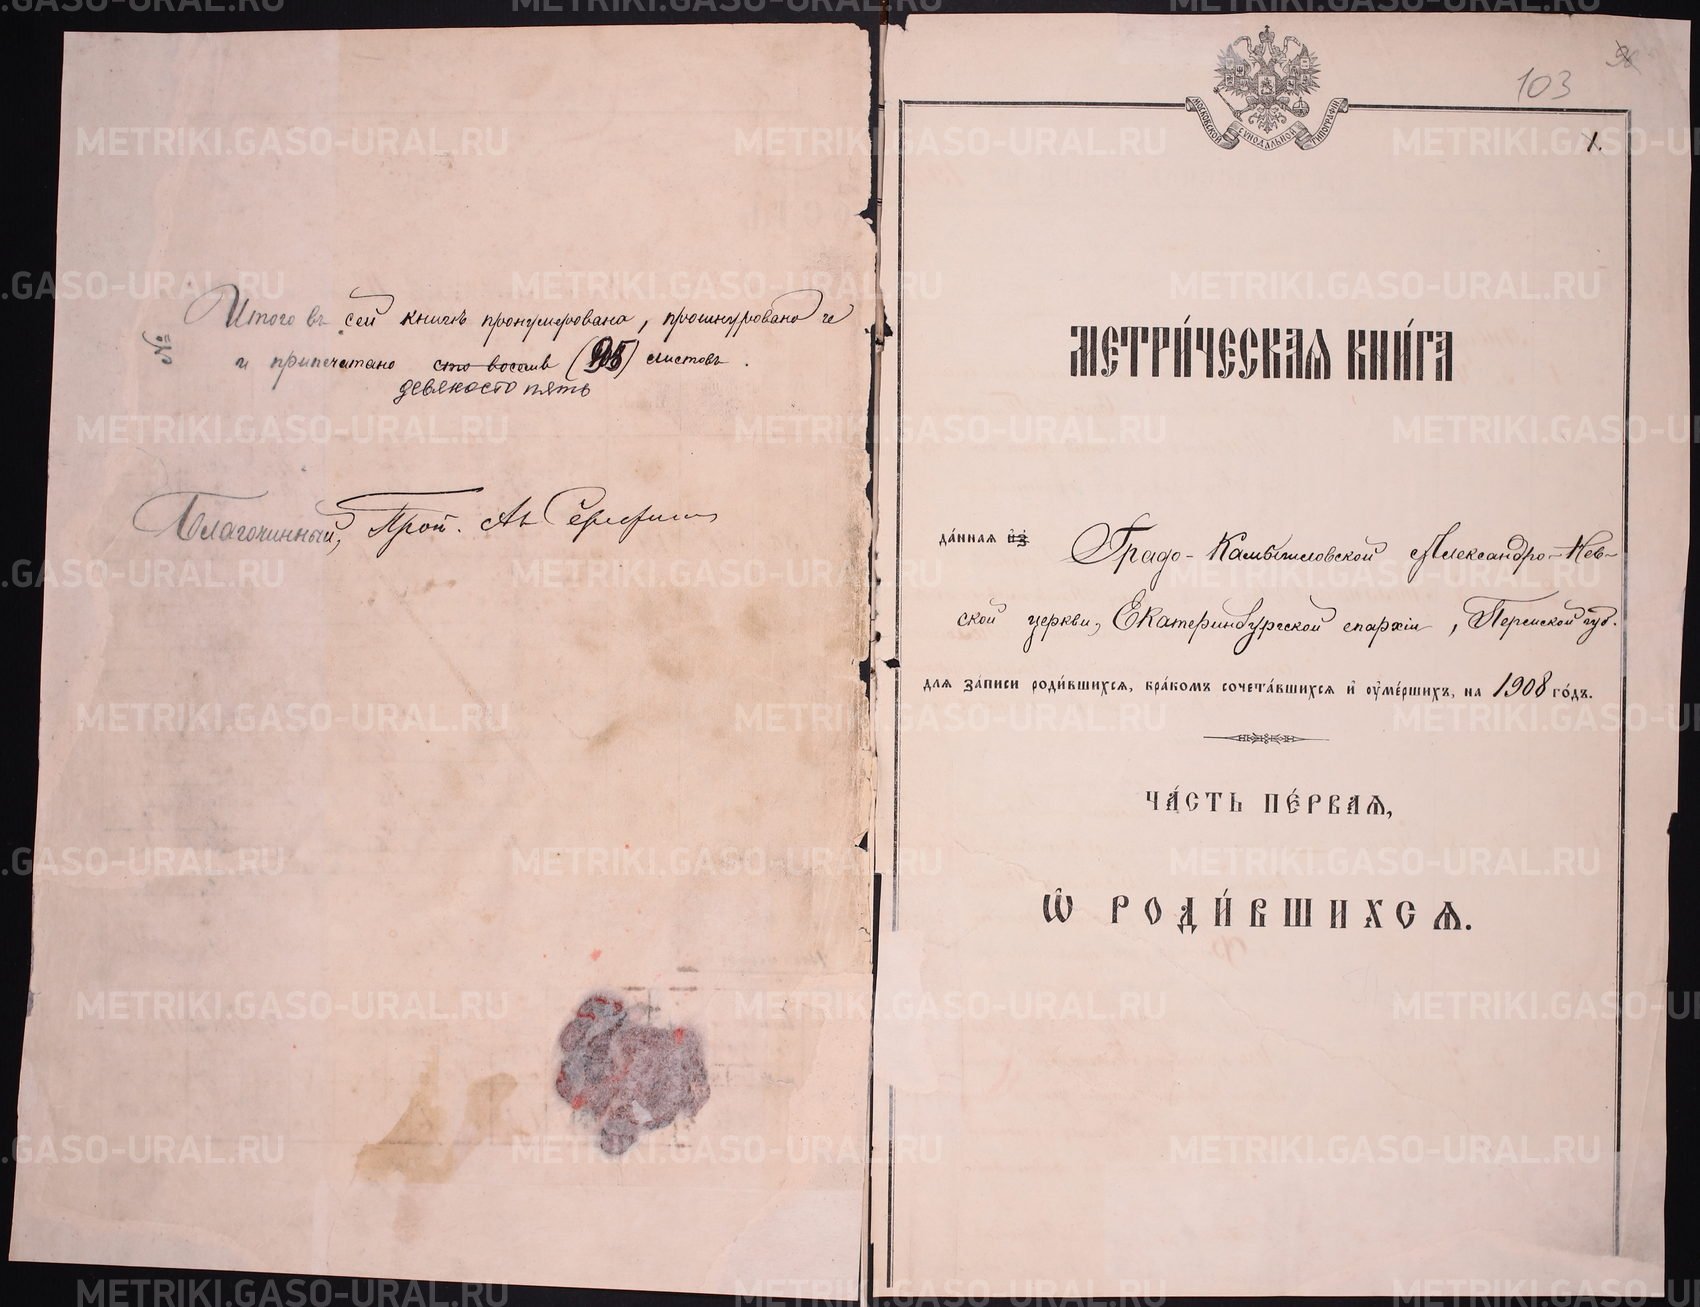 Итого въ сей книгѣ пронумеровано, прошнуровано и
и припечатано сто восемь (95) листовъ.
девяносто пять
№
Благочинный, Прот. Ал.
103
1.
МОСКОВСКОЙ СУНОДАЛЬНОЙ ТИПОГРАФІИ
МЕТРИ́ЧЕСКАѦ КНИ́ГА
да́ннаѧ и҆з̾ Градо-Камышловской Александро-Нев-
ской церкви, Екатеринбургской епархіи, Пермской губ.
для за́писи роди́вшихсѧ, бра́комъ сочета́вшихсѧ и҆ ᲂу҆ме́ршихъ, на 1908 го́дъ.
ЧА́СТЬ ПЕ́РВАѦ,
Ѽ РОДИ́ВШИХСѦ.
METRIKI.GASO-URAL.RU